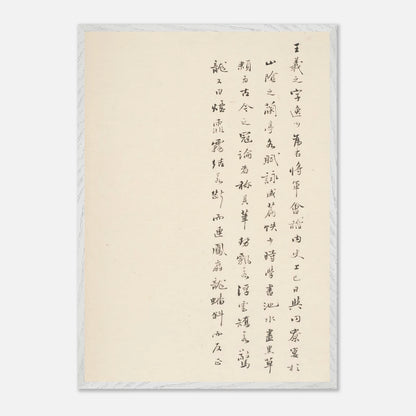 王羲之字逸少為右将軍會稽内史上巳日與同寮宴於
山陰之蘭亭各賦詠成篇帙少時學書池水盡黑草
隸為古今之冠論者称其筆勢飄若浮雲矯若驚
龍又曰煙霏霧結若断而連鳳翥龍蟠斜而反正